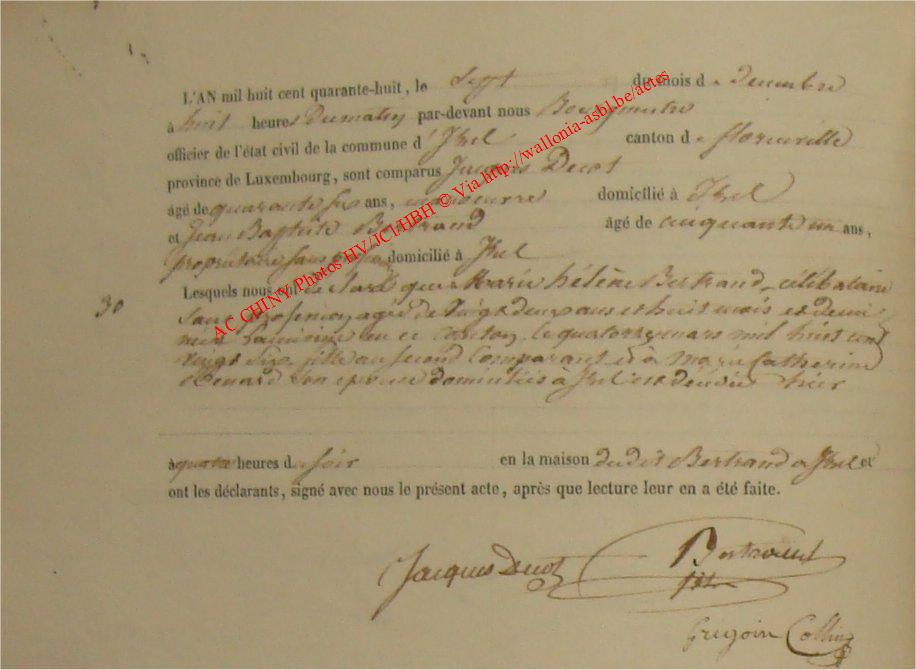 L'AN mil huit cent quarante-huit, le Sept du mois de Decembre
à huit heures Du matin par-devant nous Bourgmestre
officier de l'état civil de la commune d'Izel canton de florenville
province de Luxembourg, sont comparus Jacques Decot
âgé de quarante six ans, manoeuvre domicilié à Izel
et Jean Baptiste Bertrand âgé de cinquante un ans,
propriétaire sans domicilié à Izel
30 Lesquels nous ont déclaré que Marie hélène Bertrand, célibataire
sans profession, agée de Vingt deux ans et huit mois et demi
née en ce Canton, le quatorze mars mil huit cent
vingt Six, fille au second Comparant et à Marie Catherine
son epouse domiciliés à Izel est décédée hier
à quatre heures du soir en la maison du dit Bertrand a Izel et
ont les déclarants, signé avec nous le présent acte, après que lecture leur en a été faite.
Jacques Decot Bertrand
Gregoire Collin
AC CHINY/Photos HV/JCl/HBH © Via http://wallonia-asbl.be/actes